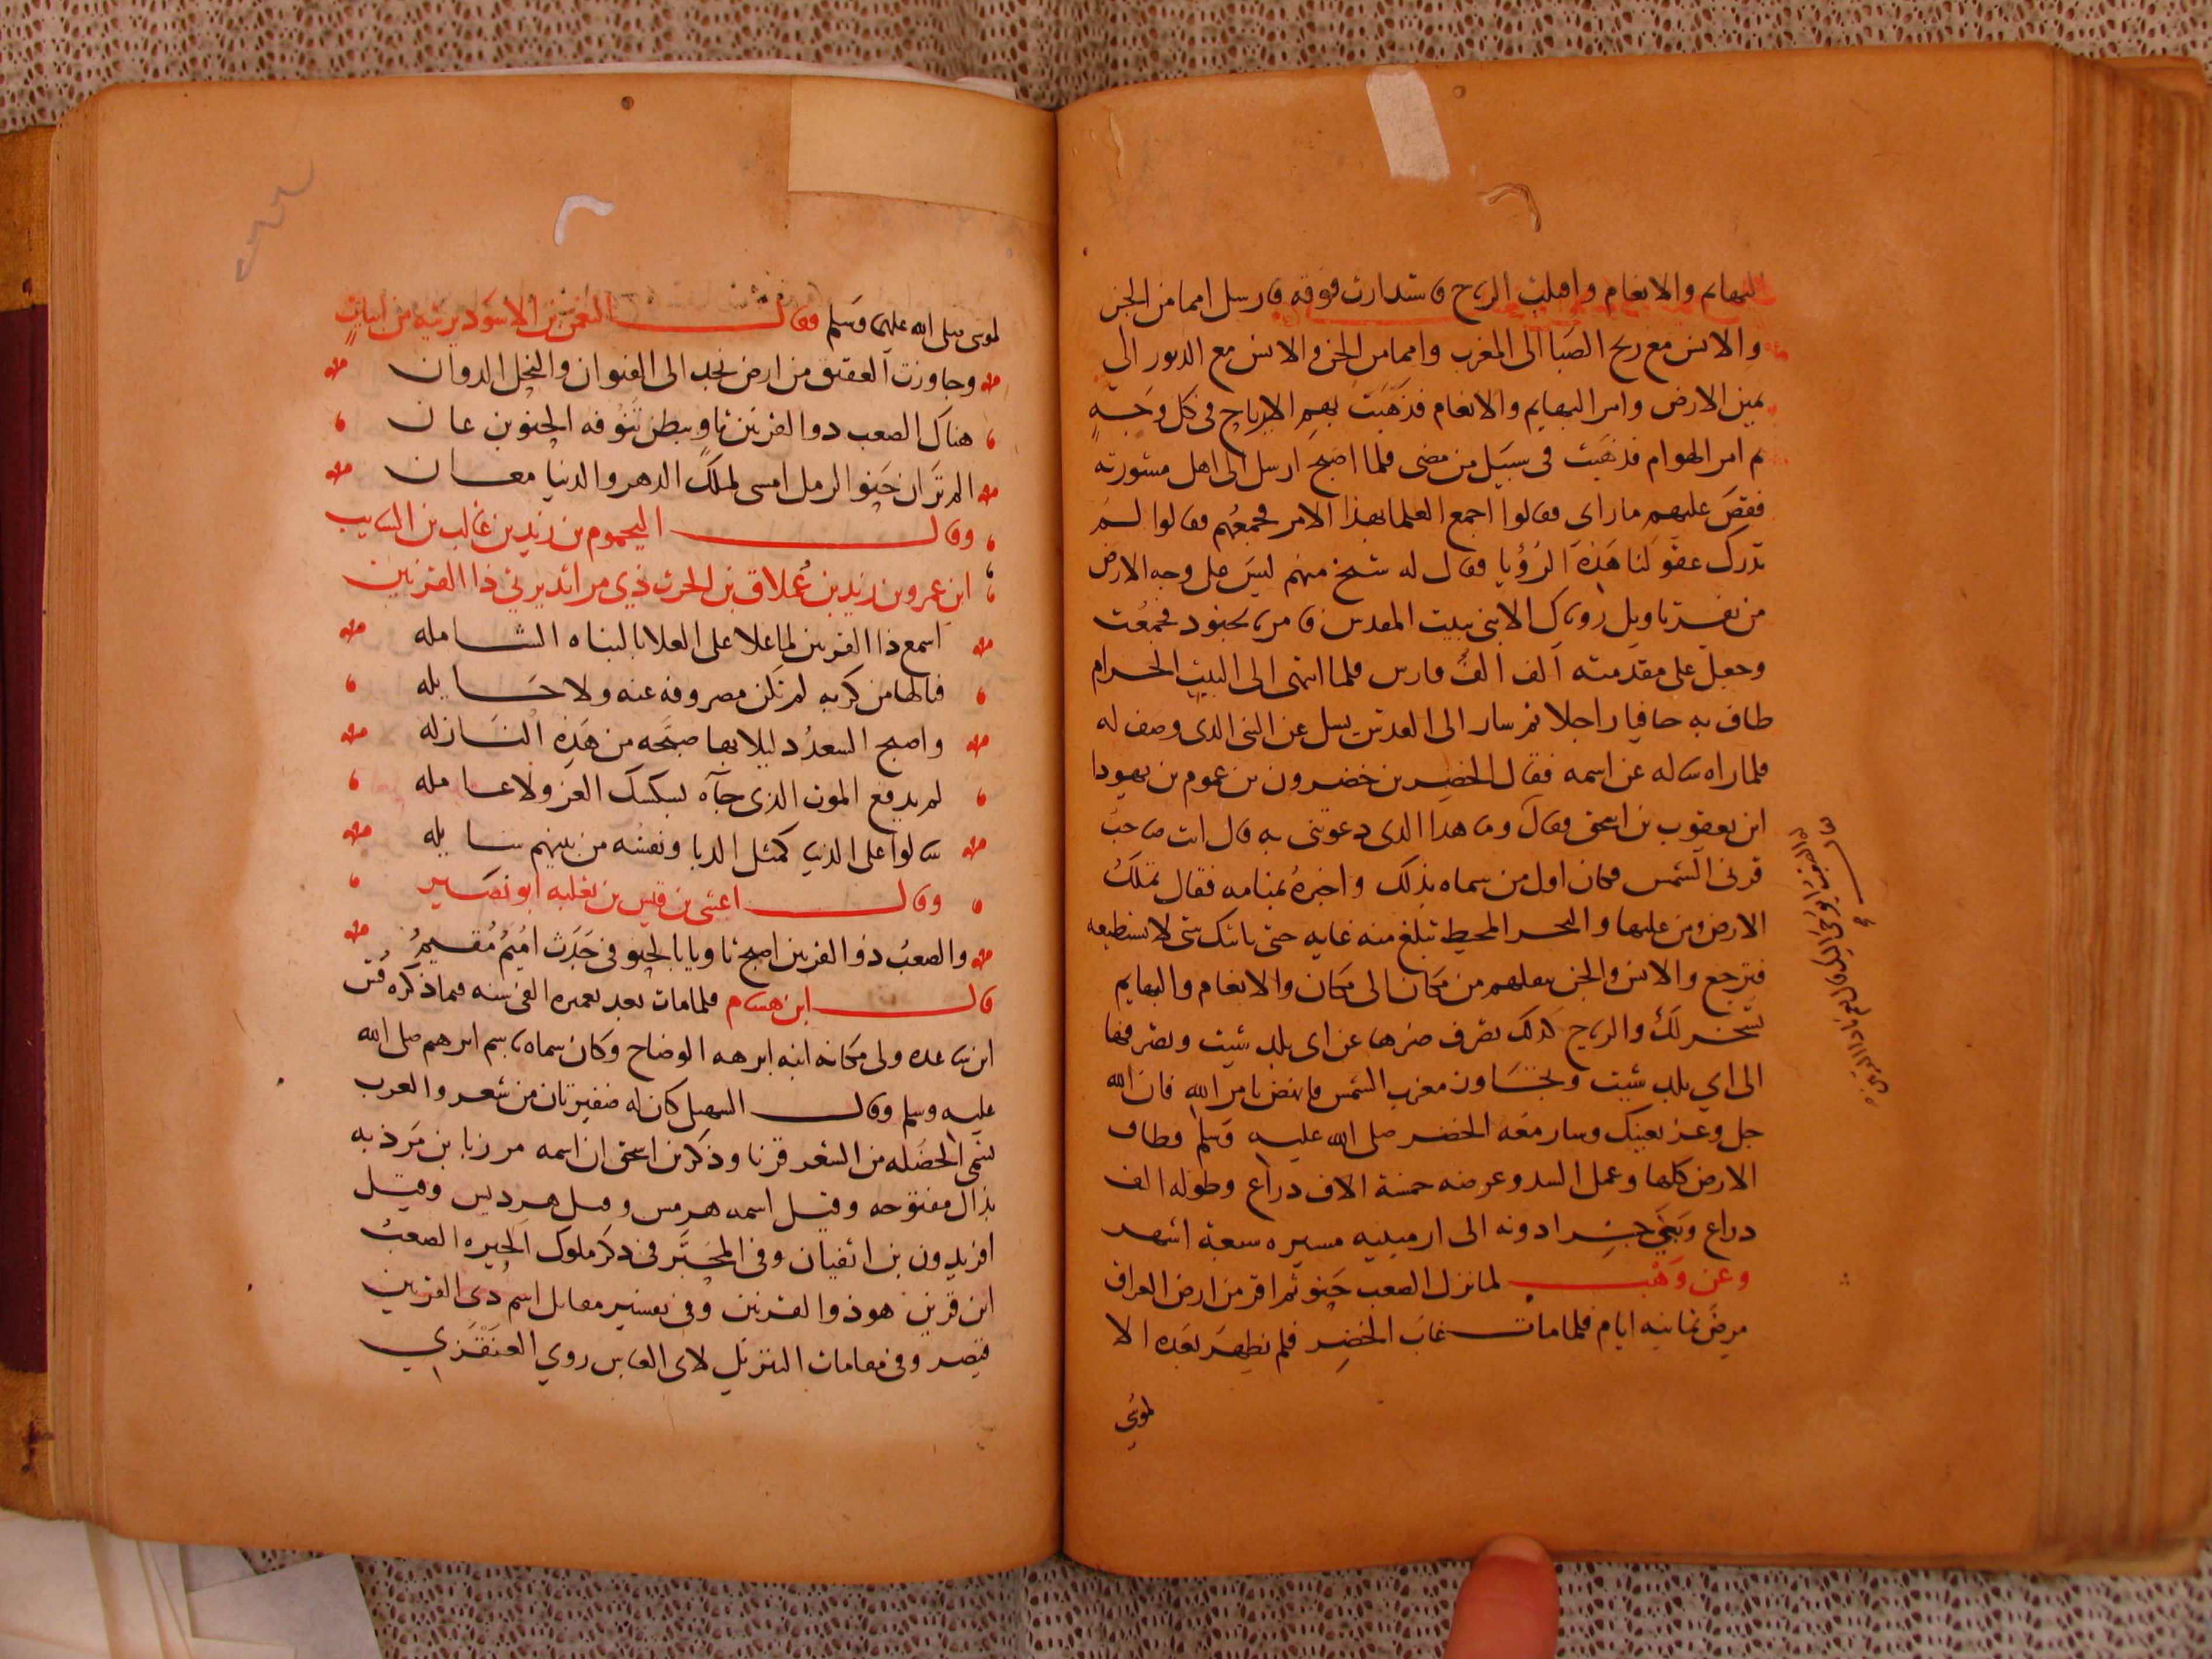 البهايم والانعام واقبلت الريح فاستدارت فوقه فارسل امما من الجن
والانس مع ريح الصبا الى المغرب وامما من الجن والانس مع الدبور الى
يمين الارض وامر البهايم والانعام فذهبت بهم الارياح فى كل وجهةٍ
ثم امر الهوام فذهبت فى سبيل من مضى فلما اصبح ارسل الى اهل مشورته
فقص عليهم ما راى فقالوا اجمع العلما لهذا الامر فجمعهم فقالوا لم
تدرك عقولنا هذه الرؤيا فقال له شيخ منهم ليس على وجه الارض
من يفسر تاويل روياك الا نبى ببيت المقدس فامر بجنود فجمعت
وجعل على مقدمته الف الف فارس فلما انتهى الى البيت الحرام
طاف به حافيا راجلا ثم سار الى القدس يسل عن النبى الذى وصف له
فلما راه ساله عن اسمه فقال الخضر بن خضرون بن عموم بن يهودا
ابن يعقوب بن اسحق فقال وما هذا الذى دعوتنى به قال انت صاحب
قرنى الشمس فكان اول من سماه بذلك واخبره بمنامه فقال تملك
الارض ومن عليها والبحر المحيط تبلغ منه غايه حتى ياتيك شى لا تستطيعه
فترجع والانس والجن تنقلهم من مكان الى مكان والانعام والبهايم
تسخر لك والريح كذلك تصرف ضرها عن اى بلد شيت وتصرفها
الى اي بلد شيت مغرب الشمس فانهض بامر الله فان الله
جل وعز يعينك وسار معه الخضر صلى الله عليه وسلم وطاف
الارض كلها وعمل السد وعرضه خمسة الاف ذراع وطوله الف
ذراع وبنى جسرا دونه الى ارمينيه مسيره سبعة اشهر
وعن وهب لما نزل الصعب حنو قراقر من ارض العراق
مرض ثمانيه ايام فلما مات غاب الخضر فلم يظهر بعده الا
لموسى
لموسى صلى الله عليهما وسلم وقال النعمن بن الاسود يرثيه من ابيات
وجاوزت العقيق من ارض نجد الى القنوان والنخل الدوان
هناك الصعب ذو القرنين ثاوٍ ببطن تنوفه الحنوين عان
الم تر ان حنو الرمل امسى لملك الدهر والدنيا معان
وقال اليحموم بن زيد بن غالب بن السايب
ابن عمرو بن زيد بن عملاق بن الحرث ذي مراثد يرثي ذا القرنين
اسمع ذا القرنين لما علا على العلا بالبناه الشامله
فالها من كربه لم تكن مصروفه عنه ولا حايله
واصبح السعد دليلا بها صبحه من هذه النازله
لم يدفع الموت الذى جآه لسكسك العز ولا عامله
سالوا على الدنيا كمثل الدبا ونفسه من بينهم سايله
وقال اعشى بن قيس بن ثعلبه ابو نصير
والصعب ذو القرنين اصبح ثاويا بالحنو فى جدث اميم مقيم
قال ابن هشام فلما مات بعد تعميره الفى سنه فيما ذكره قس
ابن ساعده ولى مكانه ابنه ابرهه الوضاح وكان سماه باسم ابرهيم صلى الله
عليه وسلم وقال السهيلى كان له ضفيرتان من شعر والعرب
تسمى الخصله من الشعر قرنا وذكر بن اسحق ان اسمه مرزبا بن مرذبه
بذال مفتوحه وقيل اسمه هرمس وقيل هرديس وقيل
افريدون بن اثفيان وفى المحبر فى ذكر ملوك الحيره الصعب
ابن قرين هو ذو القرنين وفى تفسير مقاتل اسم ذى القرنين
قيصر وفى مقامات التنزيل لابى العباس